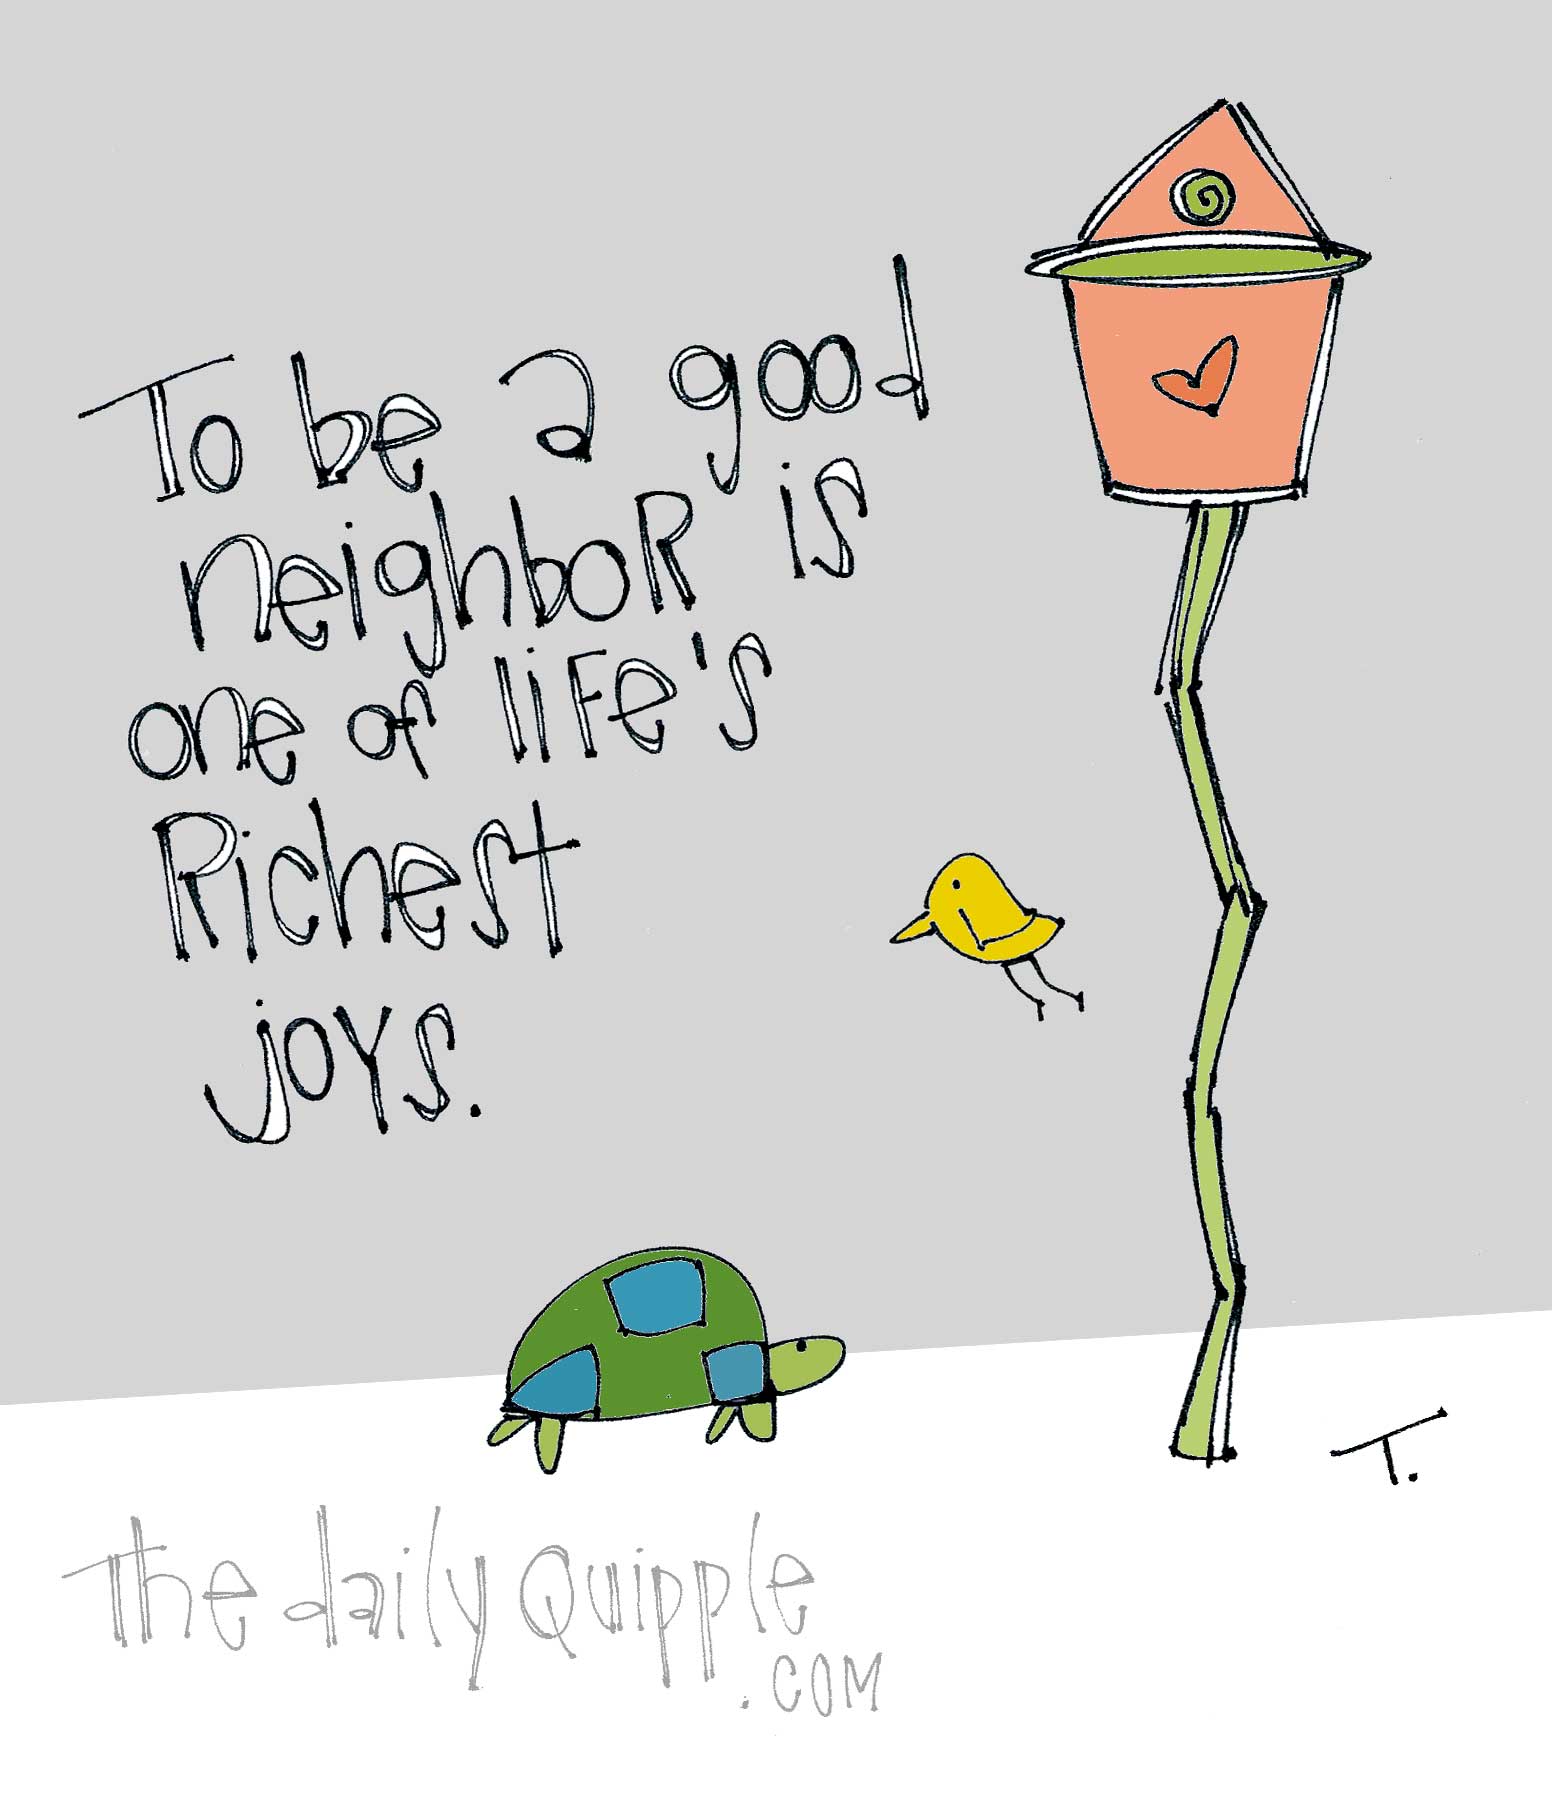 To be a good
neighboR is
one of life's
Richest
joys.
T.
The daily Quipple
.COM